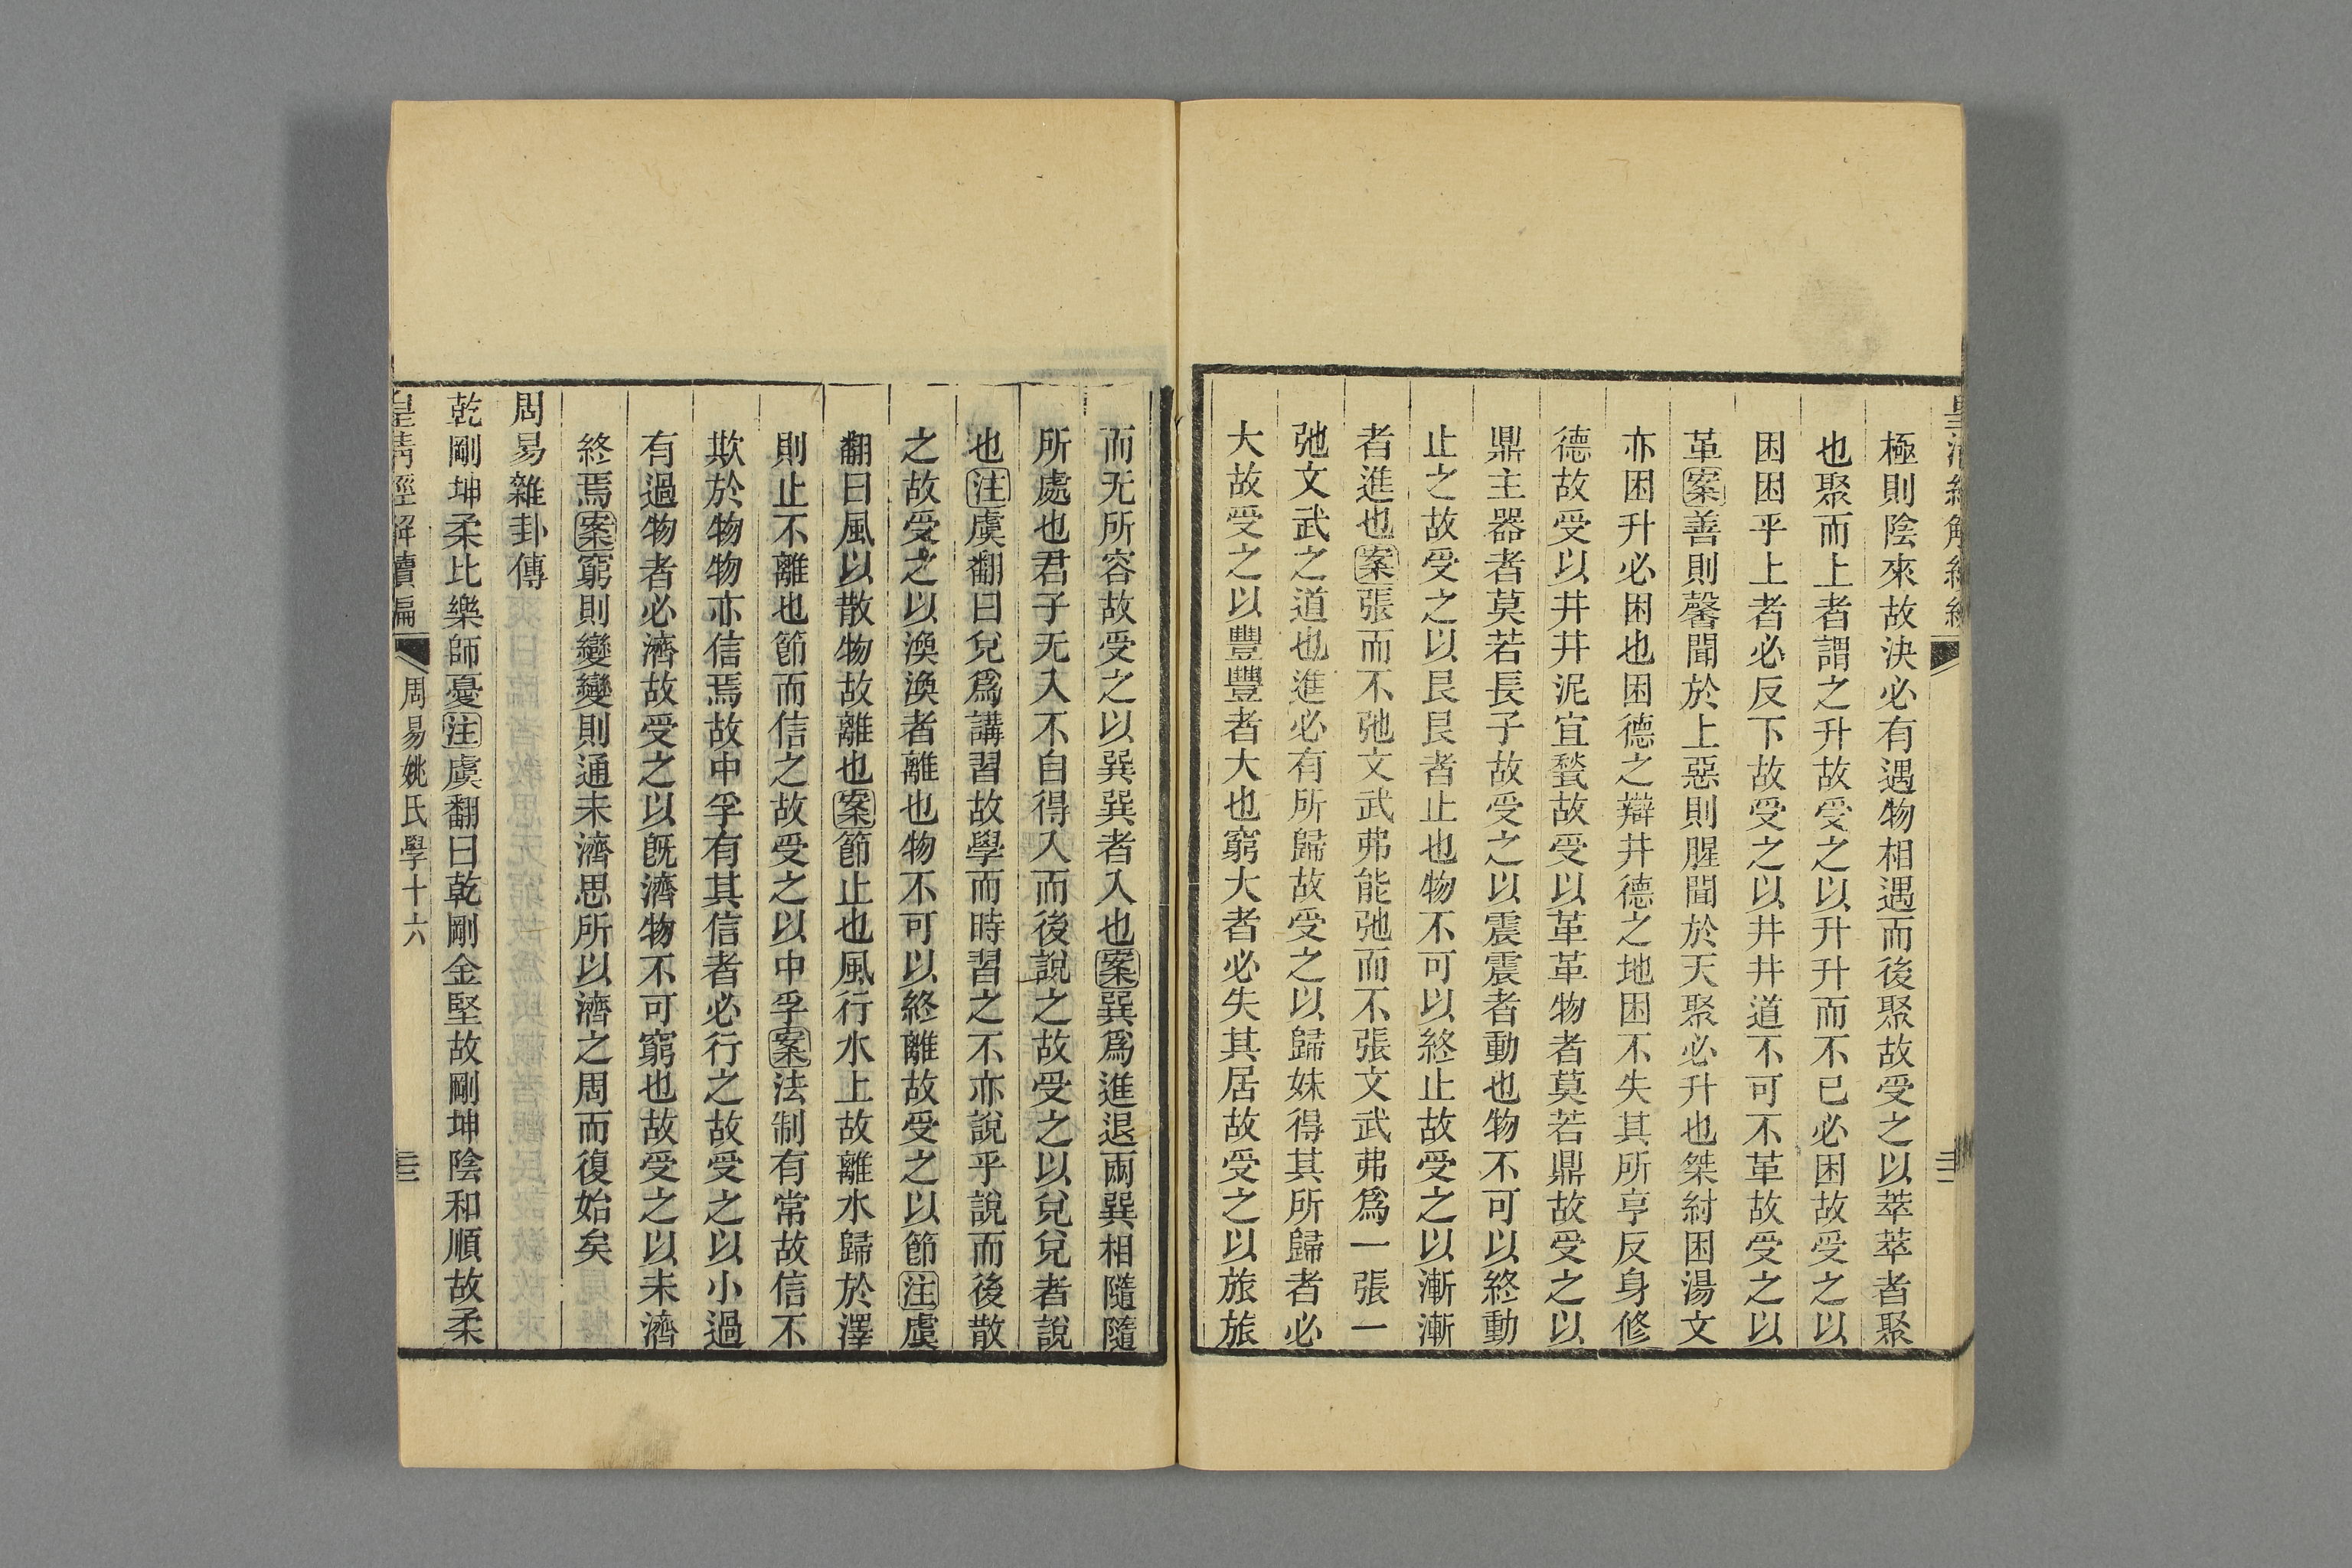 極則陰來故決必有遇物相遇而後聚故受之以萃萃者聚
也聚而上者謂之升故受之以升升而不已必困故受之以
困困乎上者必反下故受之以井井道不可不革故受之以
革案善則馨聞於上惡則腥聞於天聚必升也桀紂困湯文
亦困升必困也困德之辯井德之地困不失其所亨反身修
德故受以井井泥宜甃故受以革革物者莫若鼎故受之以
鼎主器者莫若長子故受之以震震者動也物不可以終動
止之故受之以艮艮者止也物不可以終止故受之以漸漸
者進也案張而不弛文武弗能弛而不張文武弗爲一張一
弛文武之道也進必有所歸故受之以歸妹得其所歸者必
大故受之以豐豐者大也窮大者必失其居故受之以旅旅
而无所容故受之以巽巽者入也案巽爲進退兩巽相隨隨
所處也君子无入不自得入而後說之故受之以兌兌者說
也注虞翻曰兌爲講習故學而時習之不亦說乎說而後散
之故受之以渙渙者離也物不可以終離故受之以節注虞
翻曰風以散物故離也案節止也風行水上故離水歸於澤
則止不離也節而信之故受之以中孚案法制有常故信不
欺於物物亦信焉故中孚有其信者必行之故受之以小過
有過物者必濟故受之以既濟物不可窮也故受之以未濟
終焉案窮則變變則通未濟思所以濟之周而復始矣
周易雜卦傳
乾剛坤柔比樂師憂注虞翻曰乾剛金堅故剛坤陰和順故柔
皇淸經解續編 周易姚氏學十六